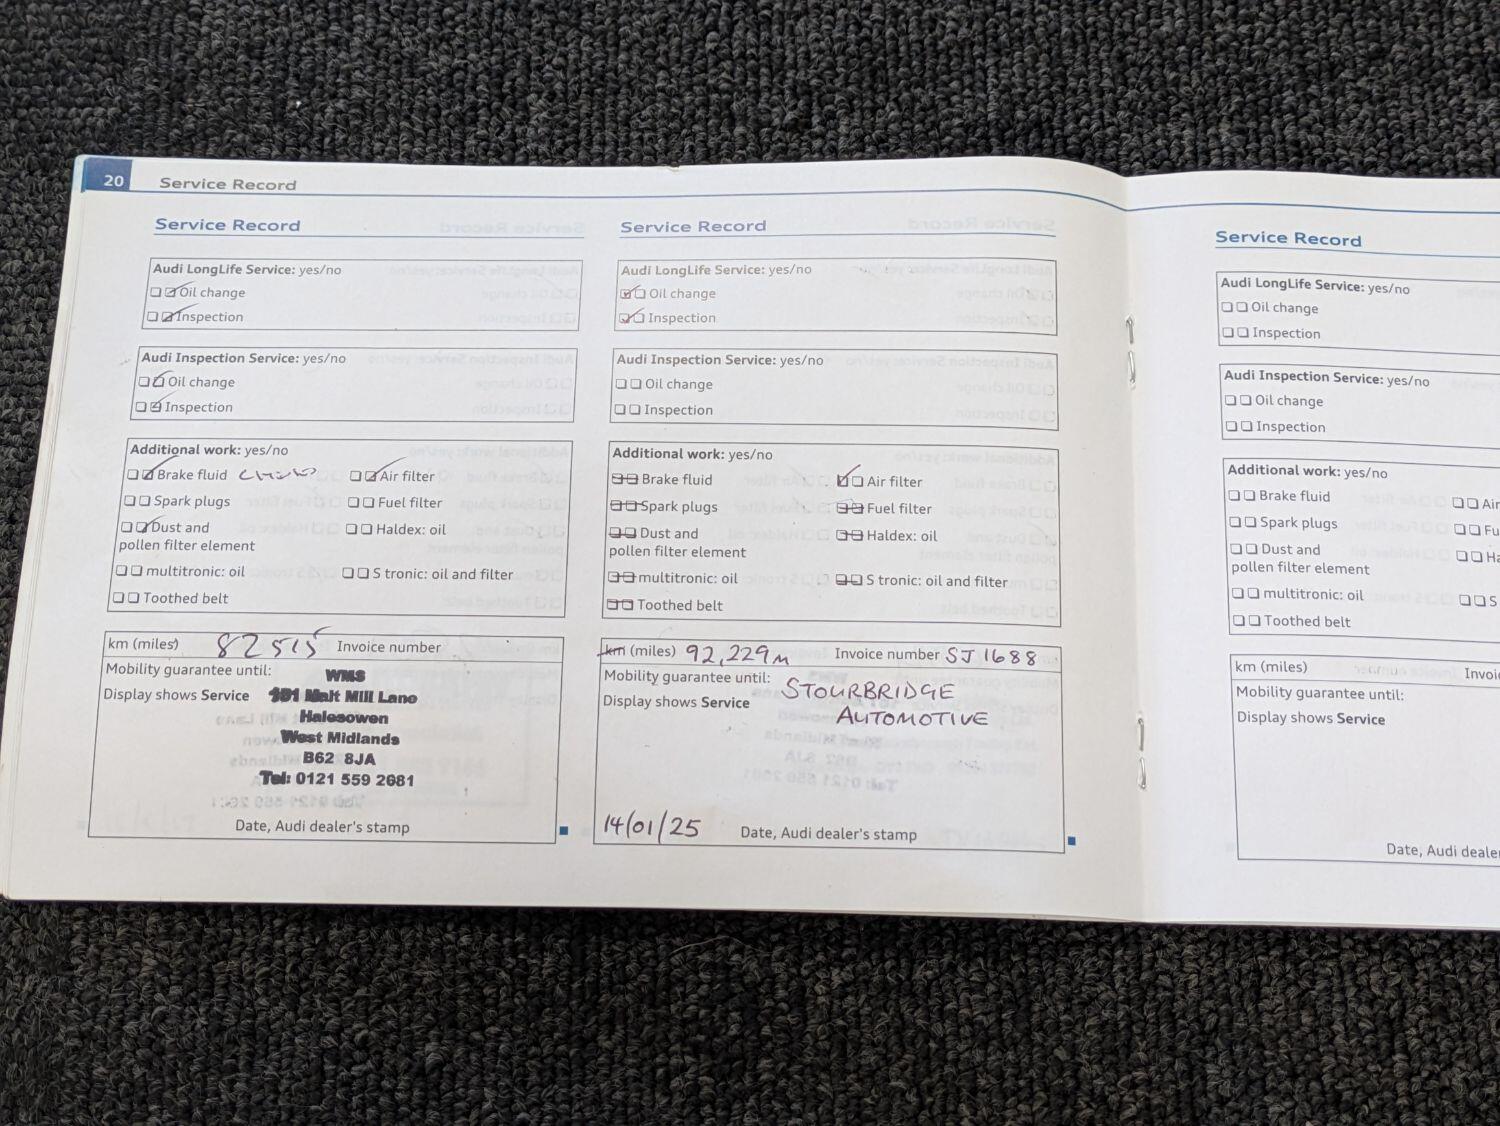 20 Service Record
Service Record
Audi LongLife Service: yes/no
☐ ☑ Oil change
☐ ☑ Inspection
Audi Inspection Service: yes/no
☐ ☑ Oil change
☐ ☑ Inspection
Additional work: yes/no
☐ ☑ Brake fluid ☐ ☑ Air filter
☐ ☐ Spark plugs ☐ ☐ Fuel filter
☐ ☑ Dust and ☐ ☐ Haldex: oil
pollen filter element
☐ ☐ multitronic: oil ☐ ☐ S tronic: oil and filter
☐ ☐ Toothed belt
km (miles) 82515 Invoice number
Mobility guarantee until:
WMS
Display shows Service
181 Malt Mill Lane
Halesowen
West Midlands
B62 8JA
Tel: 0121 559 2681
Date, Audi dealer's stamp
Service Record
Audi LongLife Service: yes/no
☑ ☐ Oil change
☑ ☐ Inspection
Audi Inspection Service: yes/no
☐ ☐ Oil change
☐ ☐ Inspection
Additional work: yes/no
☐ ☐ Brake fluid ☑ ☐ Air filter
☐ ☐ Spark plugs ☐ ☐ Fuel filter
☐ ☐ Dust and ☐ ☐ Haldex: oil
pollen filter element
☐ ☐ multitronic: oil ☐ ☐ S tronic: oil and filter
☐ ☐ Toothed belt
km (miles) 92,229m Invoice number SJ1688
Mobility guarantee until:
STOURBRIDGE
Display shows Service
AUTOMOTIVE
14/01/25 Date, Audi dealer's stamp
Service Record
Audi LongLife Service: yes/no
☐ ☐ Oil change
☐ ☐ Inspection
Audi Inspection Service: yes/no
☐ ☐ Oil change
☐ ☐ Inspection
Additional work: yes/no
☐ ☐ Brake fluid ☐ ☐ Air
☐ ☐ Spark plugs ☐ ☐ Fu
☐ ☐ Dust and ☐ ☐ Ha
pollen filter element
☐ ☐ multitronic: oil ☐ ☐ S
☐ ☐ Toothed belt
km (miles) Invoi
Mobility guarantee until:
Display shows Service
Date, Audi deale